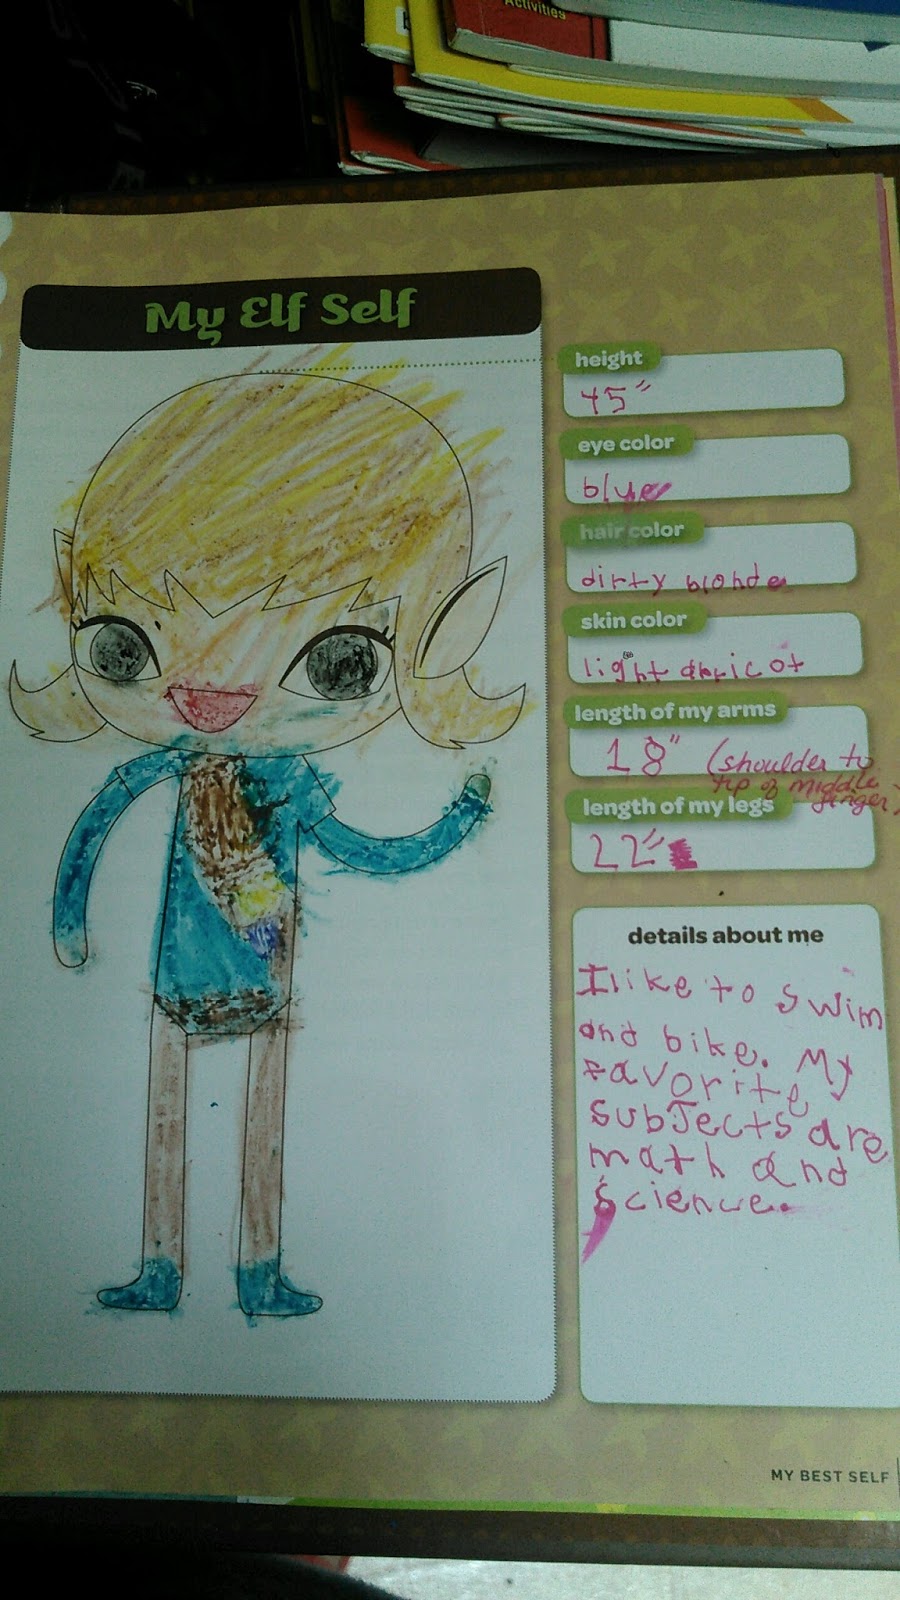 Activities
My Elf Self
height
45"
eye color
blue
hair color
dirty blonde
skin color
light apricot
length of my arms
18" (shoulder to
tip of middle
finger)
length of my legs
22"
details about me
I like to swim
and bike. My
favorite
subJects are
math and
science.
MY BEST SELF